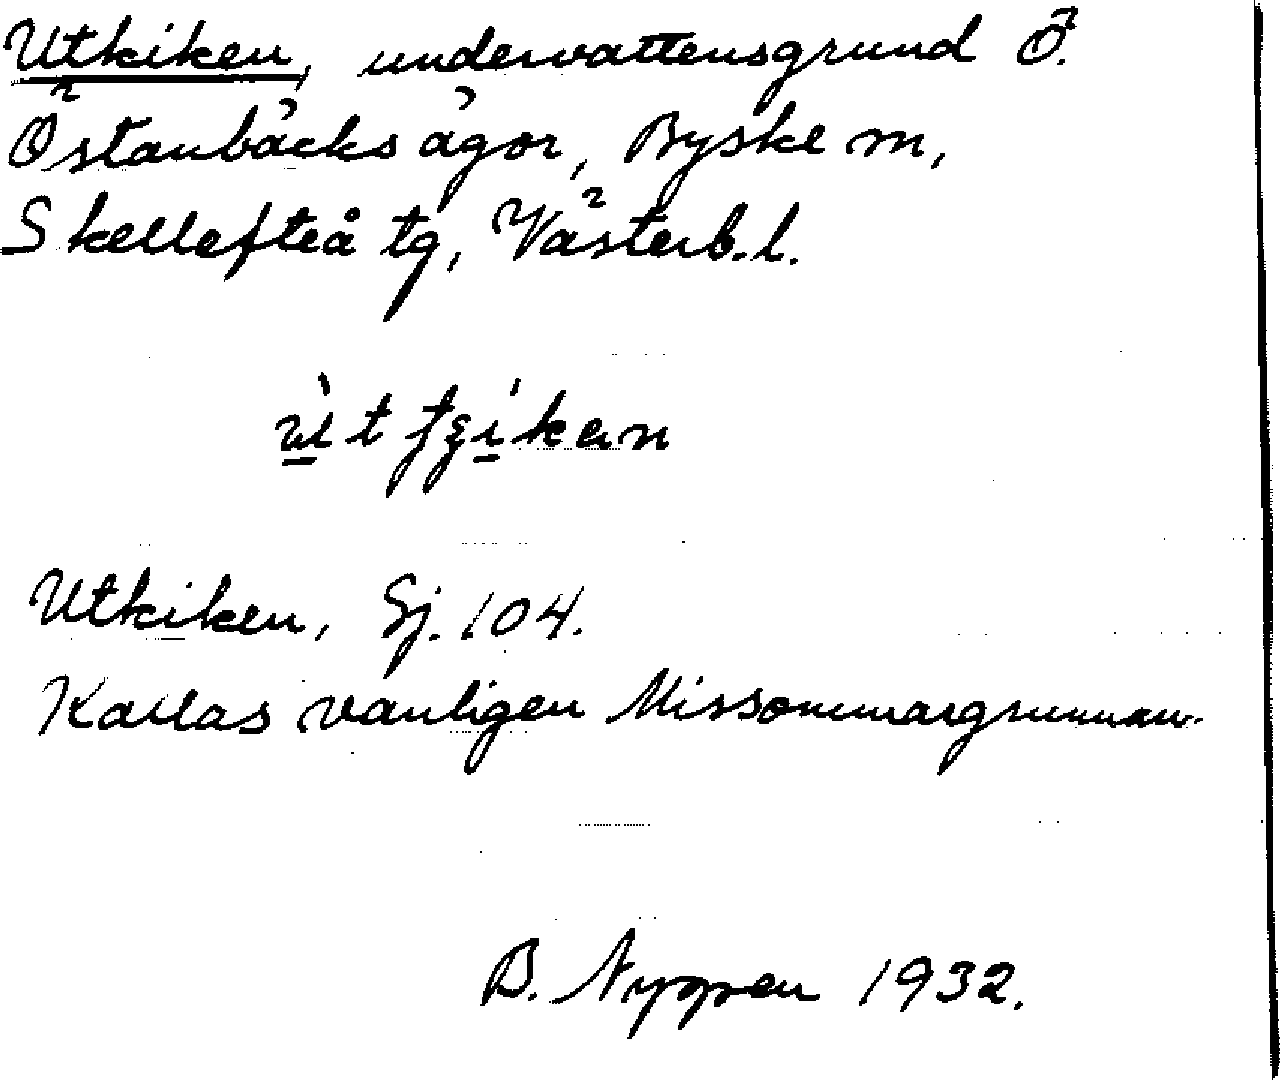 Utkiken, undervattensgrund Ö.
Östanbäcks ägor, Byske sn,
Skellefteå tg, Västerb. l.
Utkiken, Sj. 104.
Kallas vanligen Missommargrunnan.
B. Nygren 1932.